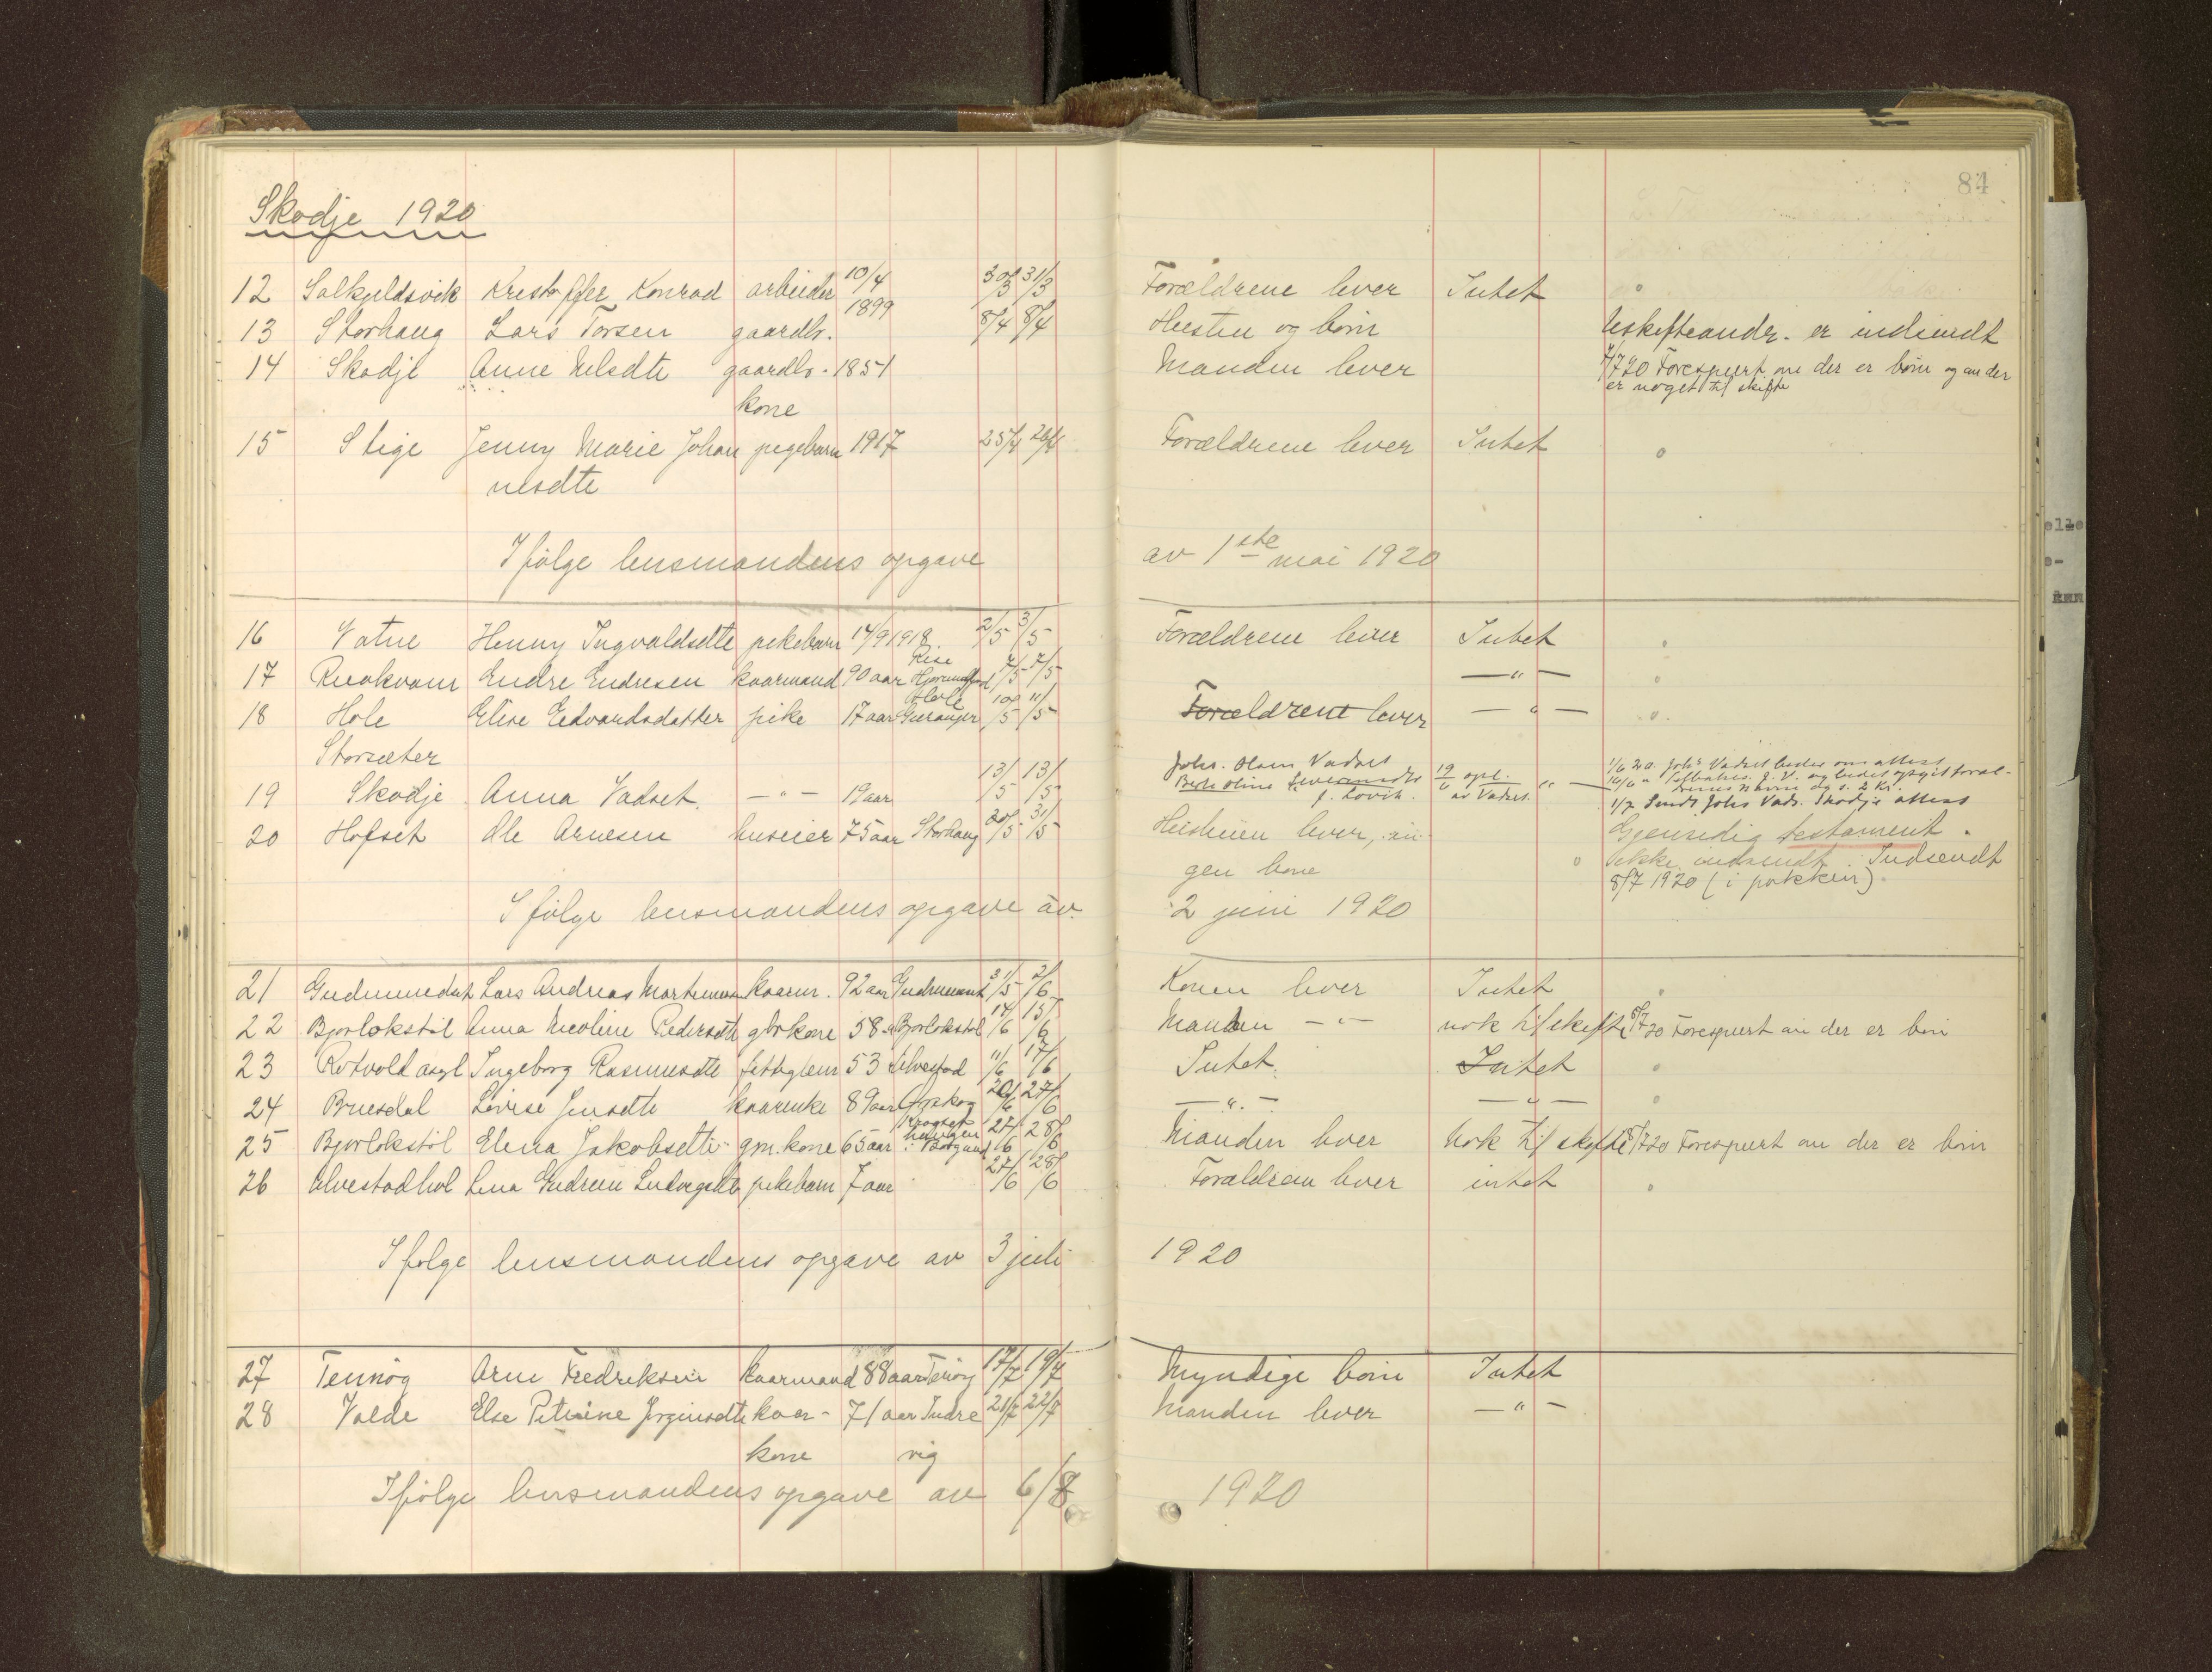 84
Skodje 1920
12 Solkjeldsvik Kristoffer Konrad arbeider 10/4 1899 30/3 31/3 Forældrene lever Intet
13 Storhaug Lars Torsen gaardbr. 8/4 8/4 Hustru og børn Uskifteandr. er indsendt
14 Skodje Anne Nilsdtr gaardbr. 1851 Manden lever 7/7 20 Forespurt om der er børn og om der
kone er noget til skifte
15 Stige Jenny Marie Johan pigebarn 1917 25/4 26/4 Forældrene lever Intet
nesdtr
Ifølge lensmandens opgave av 1ste mai 1920
16 Vatne Henny Ingvaldsdtr pikebarn 14/9 1918 2/5 3/5 Forældrene lever Intet
17 Endre Endresen kaarmand 90 aar Rise Hjørundfjord 7/5 7/5 — " —
18 Hole Elise Edvardsdatter pike 17 aar Hole Geiranger 10/5 11/5 Forældrene lever — " —
Storsæter
19 Skodje Anna Vadset. — " — 19 aar 13/5 13/5 Johs. Olsen Vadset
20 Hofset Ole Arnesen huseier 75 aar Storhaug 31/5 Hustruen lever, in- Gjensidig testament.
gen børn Ikke indsendt. Indsendt
8/7 1920 (i pakken).
Ifølge lensmandens opgave av 2 juni 1920
21 Gudmundset Lars Andreas Martinusen kaarm. 92 aar Gudmundset 31/5 2/6 Konen lever Intet
22 Bjørlokstøl Anna Nicoline Pedersdtr gbrkone 58 " Bjørlokstøl 14/6 15/6 Manden — " — nok til skifte 8/7 20 Forespurt om der er børn
23 Rotvold asyl Ingeborg Rasmusdtr fattiglem 53 Ulvestad 11/6 17/6 Intet. Intet
24 Bruesdal Lovise Jensdtr kaarenke 89 aar Ørskog 20/6 27/6 — " — — " —
25 Bjørlokstøl Elena Jakobsdtr gm.kone 65 aar i Borgund 27/6 28/6 Manden lever Nok til skifte 8/7 20 Forespurt om der er børn
26 Ulvestadhol Lina Gudrun Ludvigsdtr pikebarn 7 aar 27/6 28/6 Forældrene lever intet
Ifølge lensmandens opgave av 3 juli 1920
27 Tennøy Arne Fredriksen kaarmand 88 aar Tenøy 17/7 19/7 Myndige børn Intet
28 Valde Else Petrine Jørginsdtr kaar- 71 aar Indre 21/7 22/7 Manden lever — " —
kone vig
Ifølge lensmandens opgave av 6/8 1920